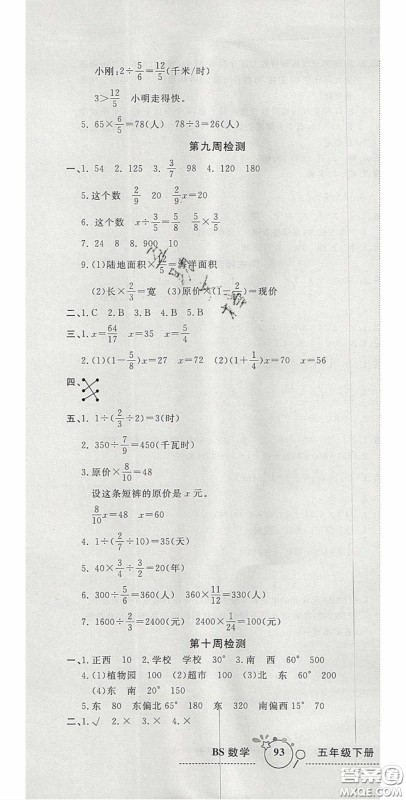 小刚：2÷5/6=12/5(千米/时)
3>12/5 小明走得快。
5. 65×6/5=78(人) 78÷3=26(人)
第九周检测
一、1. 54 2. 125 3. 3/7 98 4. 120 180
5. 这个数 2/9 20 2/9x=20
6. 这个数 x÷3/5=5/8 5/8×3/5
7. 24 8 8. 900 10
9. (1)陆地面积× /5=海洋面积
(2)长× =宽 (3)原价×(1- )=现价
二、1. C 2. B 3. B 4. B
三、1. x=64/17 x=35 x=5/4
2. (1)(1-5/8)x=27 x=72 (2)(1+1/4)x=70 x=56
四、
五、1. 1÷(2/3÷2)=3(时)
2. 350÷7/9=450(千瓦时)
3. 原价×8/10=48
设这条短裤的原价是x元。
8/10x=48 x=60
4. 1÷(2/7÷10)=35(天)
5. 40×3/4÷3/2=20(年)
6. 300÷5/6=360(人) 360×11/12=330(人)
7. 1600÷2/3=2400(元) 2400×1/24=100(元)
第十周检测
一、1. 正西 10 2. 学校 学校 30° 3. 南 西 60° 500
4. (1)植物园 100 (2)超市 100 (3)北 东 20° 150
(4)东 南 20° 180
5. 东 80 东偏北60° 50 南偏西70° 90
二、1. √ 2. × 3. × 4. ×
BS 数学 93 五年级下册
答案圈
MXQE.COM